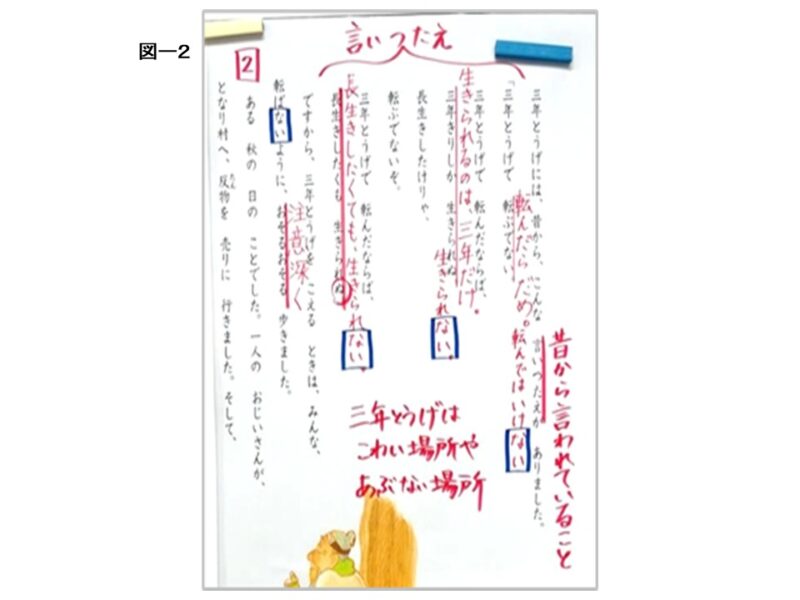 図ー2
言いつたえ
三年とうげには、昔から、こんな 言いつたえが ありました。
昔から言われていること
「三年とうげで 転ぶでない
転んだらだめ。転んではいけない
三年とうげで 転んだならば、
三年きりしか 生きられぬ
生きられるのは、三年だけ。
生きられない。
長生きしたけりゃ、
転ぶでないぞ。
三年とうげで 転んだならば、
長生きしたくも 生きられぬ
長生きしたくても、生きられない。
ですから、三年とうげを こえる ときは、みんな、
転ばないように、おそるおそる 歩きました。
注意深く
三年とうげは
こわい場所や
あぶない場所
2
ある 秋の 日の ことでした。一人の おじいさんが、
となり村へ、反物を 売りに 行きました。そして、
たん